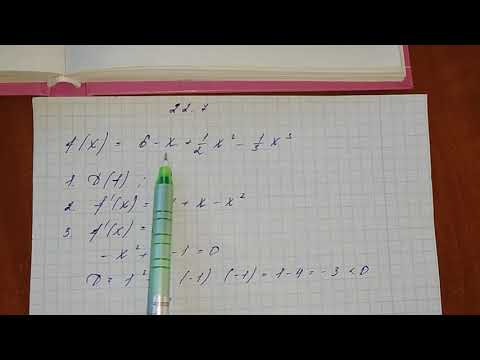 22.7
f(x) = 6 - x + 1/2 x² - 1/3 x³
1. D(f) :
2. f'(x) = + x - x²
3. f'(x) =
- x² + - 1 = 0
D = 1² (-1) (-1) = 1 - 4 = -3 < 0